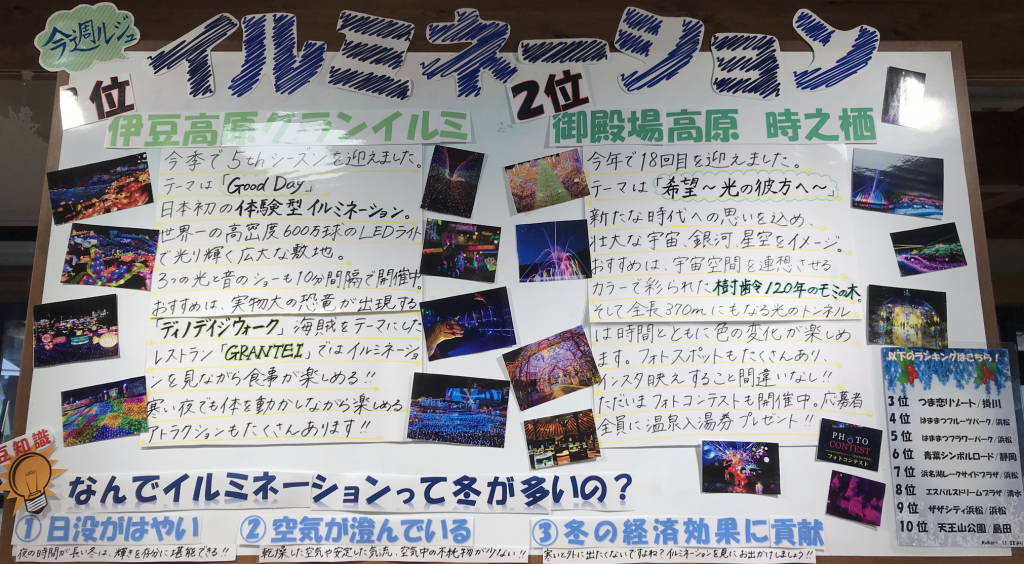 今週ルジュ
イルミネーション
1位
伊豆高原グランイルミ
今季で5thシーズンを迎えました。
テーマは「Good Day」
日本初の体験型イルミネーション。
世界一の高密度600万球のLEDライト
で光り輝く広大な敷地。
3つの光と音のショーも10分間隔で開催中
おすすめは、実物大の恐竜が出現する
「ディノデイジウォーク」海賊をテーマにした
レストラン「GRANTEI」ではイルミネーショ
ンを見ながら食事が楽しめる!!
寒い夜でも体を動かしながら楽しめる
アトラクションもたくさんあります!!
2位
御殿場高原 時之栖
今年で18回目を迎えました。
テーマは「希望〜光の彼方へ〜」
新たな時代への思いを込め、
壮大な宇宙、銀河、星空をイメージ。
おすすめは、宇宙空間を連想させる
カラーで彩られた樹齢120年のモミの木。
そして全長370mにもなる光のトンネル
は時間とともに色の変化が楽しめ
ます。フォトスポットもたくさんあり、
インスタ映えすること間違いなし!!
ただいまフォトコンテストも開催中。応募者
全員に温泉入湯券プレゼント!!
PHOTO
CONTEST
フォトコンテスト
以下のランキングはこちら!
3位 つま恋リゾート/掛川
4位 はままつフルーツパーク/浜松
5位 はままつフラワーパーク/浜松
6位 青葉シンボルロード/静岡
7位 浜名湖レークサイドプラザ/浜松
8位 エスパルスドリームプラザ/清水
9位 ザザシティ浜松/浜松
10位 天王山公園/島田
豆知識
なんでイルミネーションって冬が多いの?
① 日没がはやい
夜の時間が長い冬は、輝きを存分に堪能できる!!
② 空気が澄んでいる
乾燥した空気や安定した気流、空気中の不純物が少ない!!
③ 冬の経済効果に貢献
寒いと外に出たくないですよね?イルミネーションを見にお出かけしましょう!!